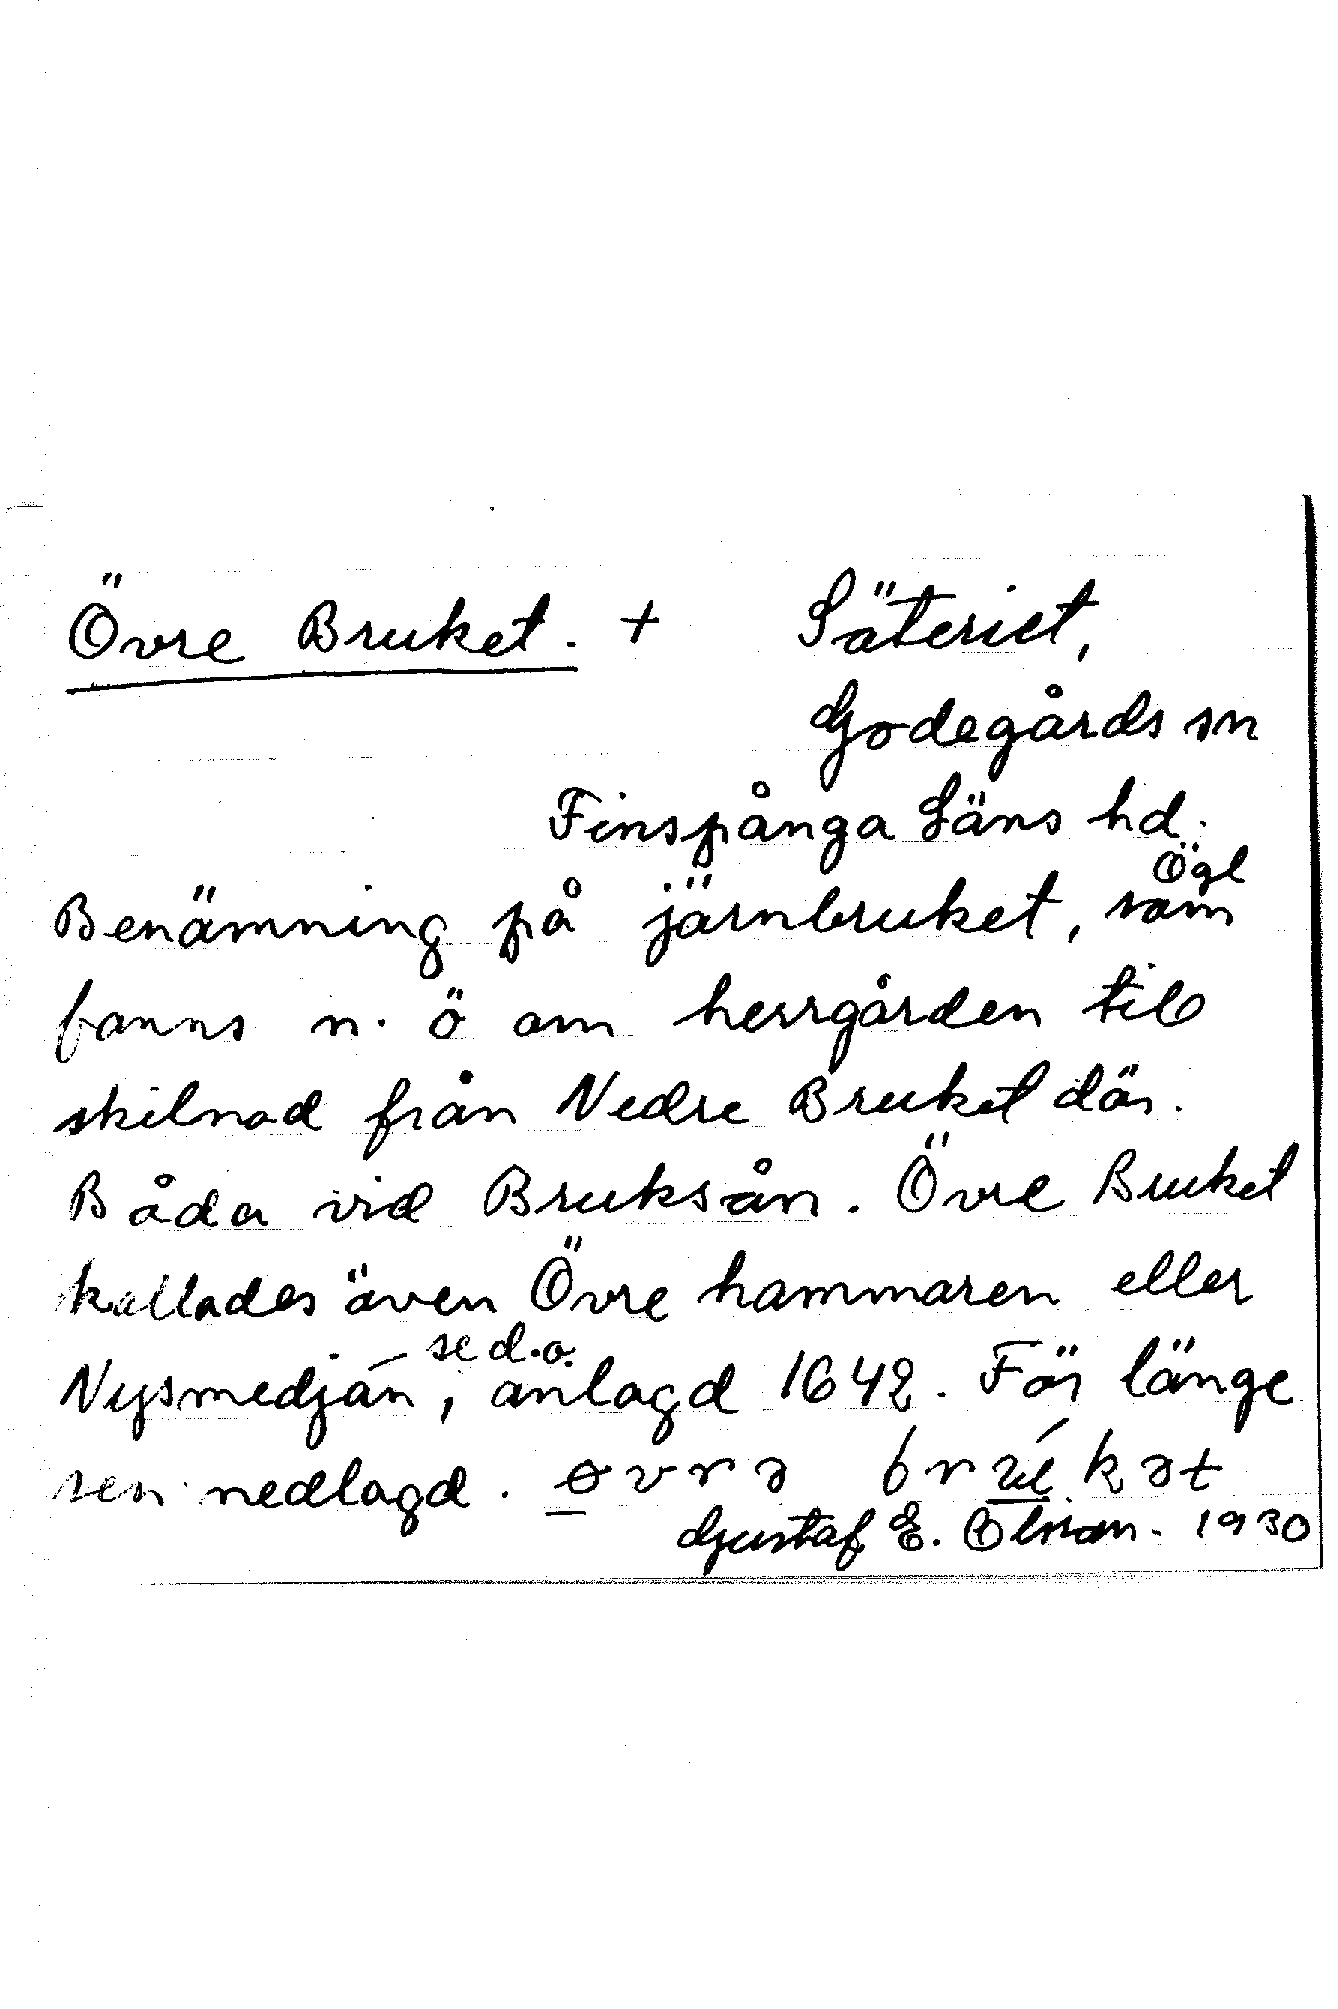 Övre Bruket. + Säteriet,
Godegårds sn
Finspånga Läns hd.
Ögl
Benämning på järnbruket, som
fanns n. ö om herrgården till
skilnad från Nedre Bruket där.
Båda vid Bruksån. Övre Bruket
kallades även Övre hammaren eller
se d.o.
Nysmedjan, anlagd 1642. För länge
sen nedlagd. øvrə brúkət
Gustaf E. Olson. 1930